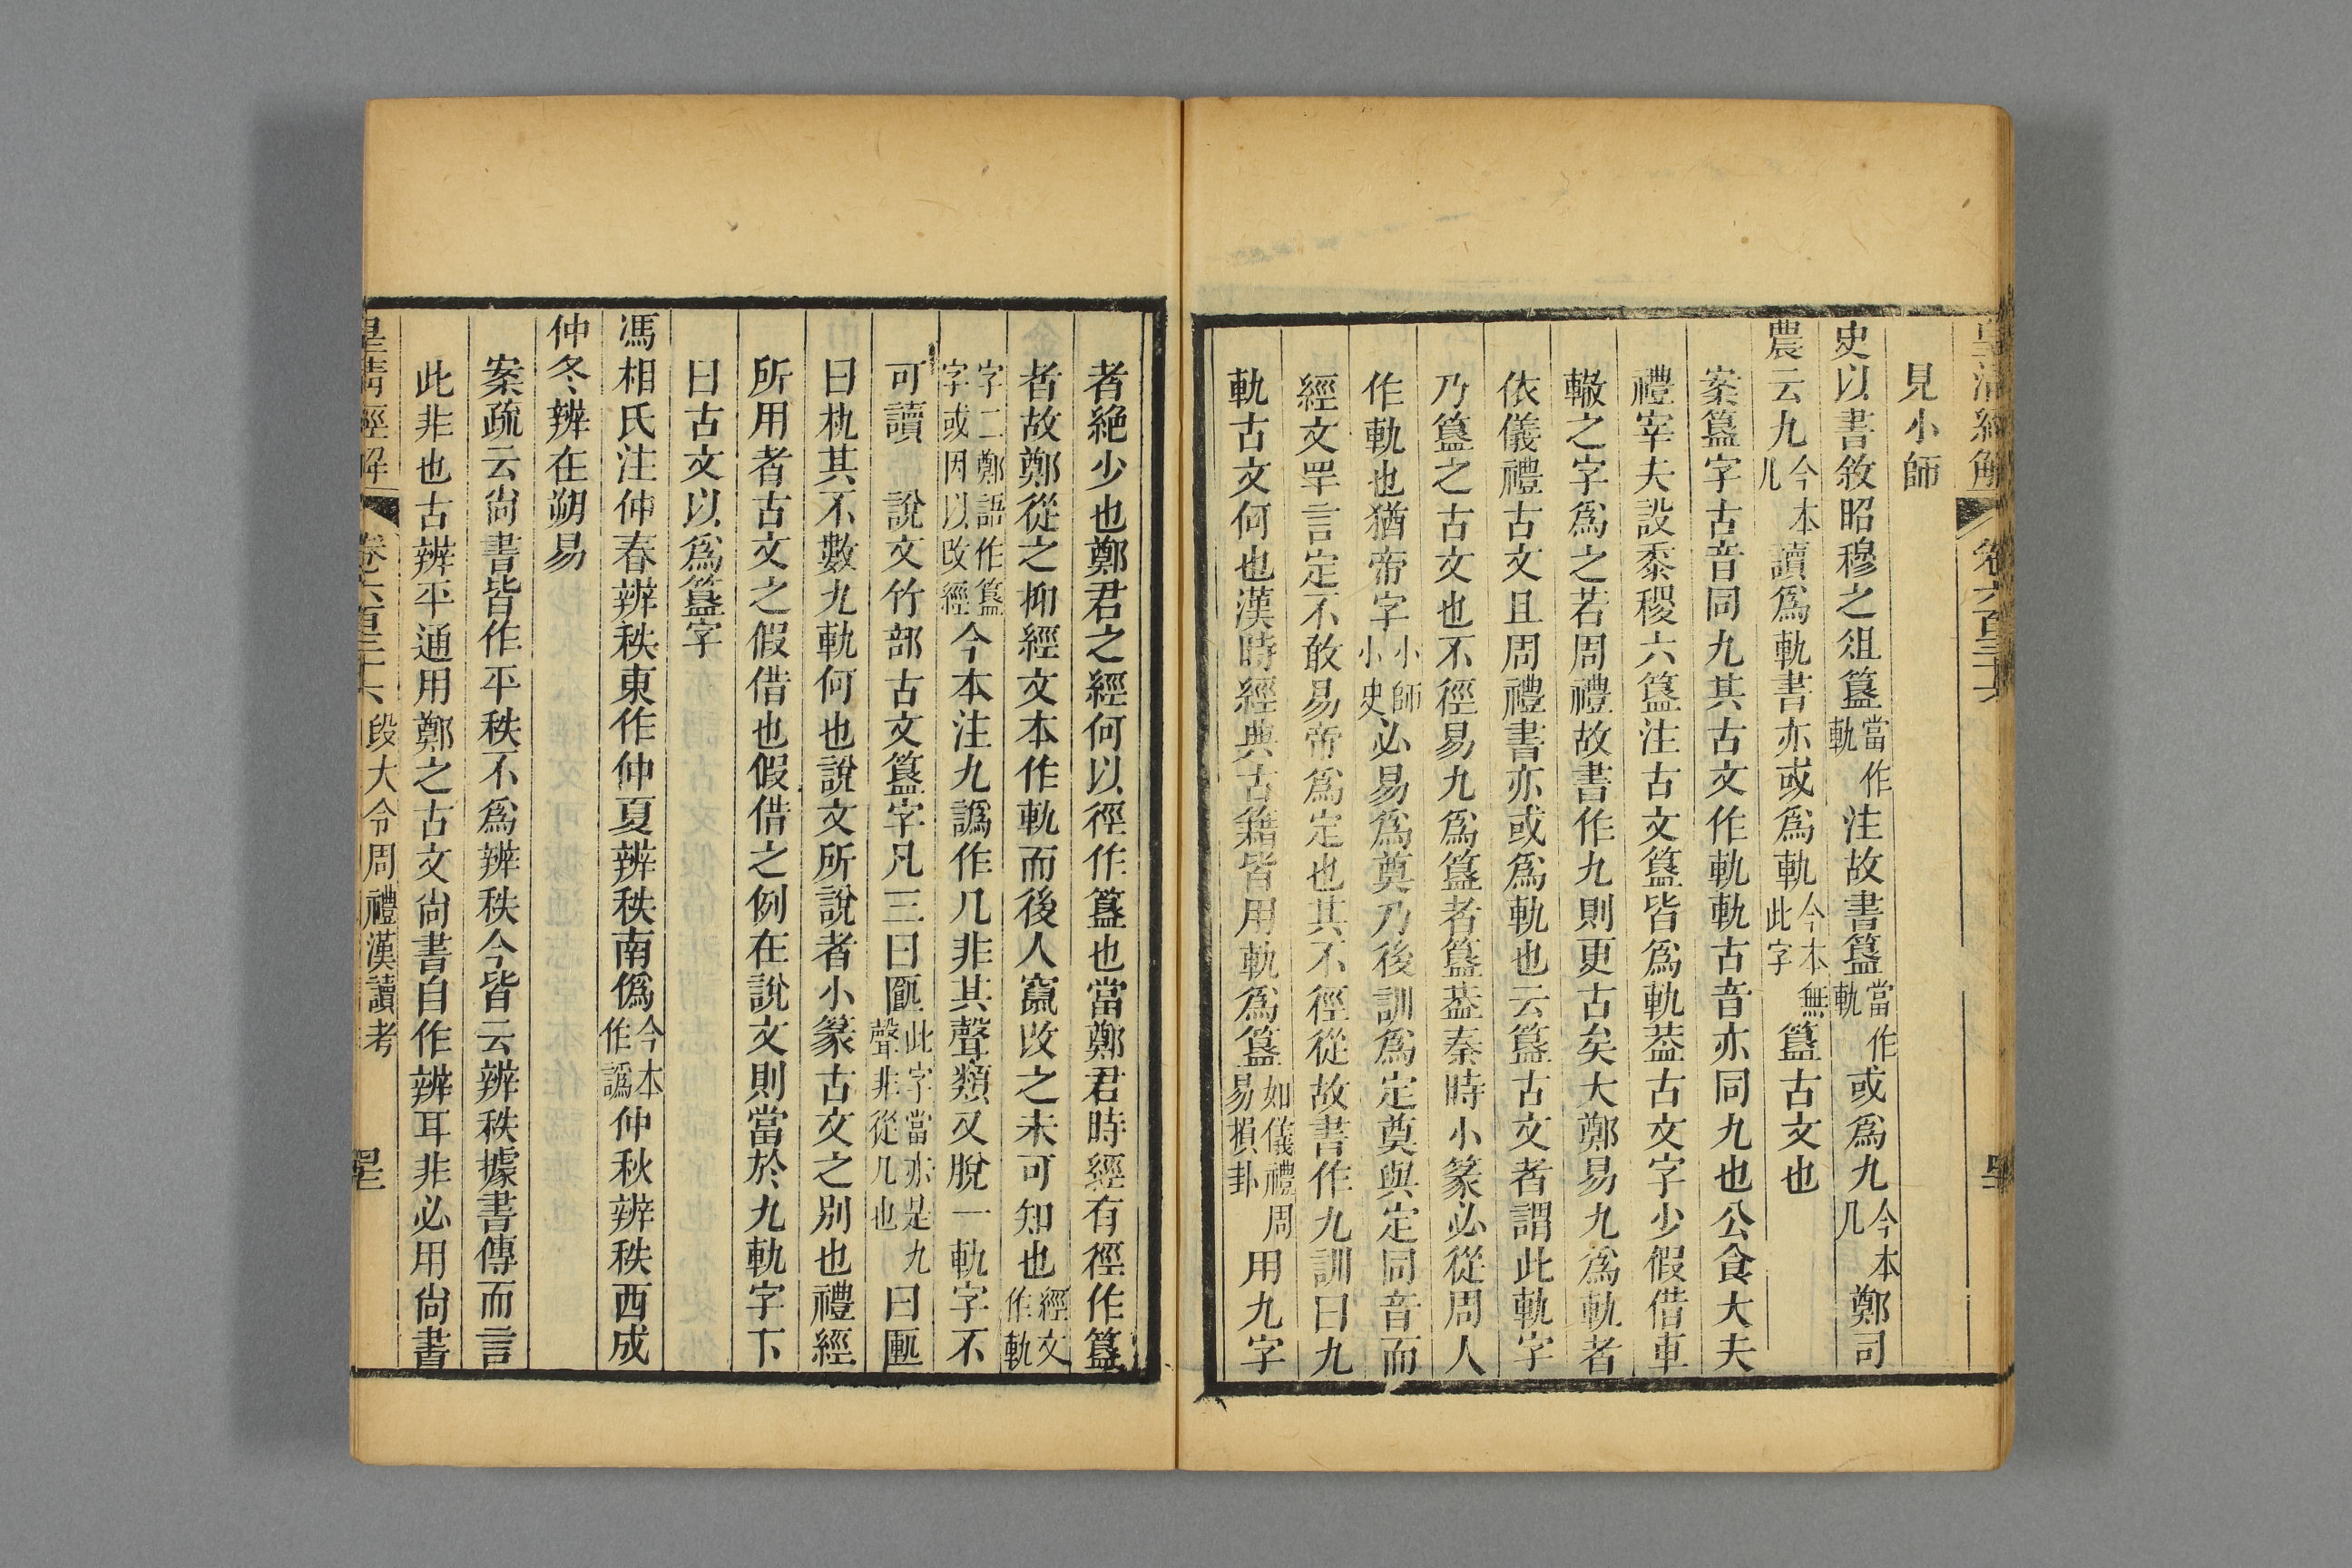 皇清經解
卷六百三十六
見小師
史以書敘昭穆之俎簋當作軌注故書簋當作軌或爲九今本几鄭司
農云九今本几讀爲軌書亦或爲軌今本無此字簋古文也
案簋字古音同九其古文作軌軌古音亦同九也公食大夫
禮宰夫設黍稷六簋注古文簋皆爲軌葢古文字少假借車
轍之字爲之若周禮故書作九則更古矣大鄭易九爲軌者
依儀禮古文且周禮書亦或爲軌也云簋古文者謂此軌字
乃簋之古文也不徑易九爲簋者簋葢秦時小篆必從周人
作軌也猶帝字小師小史必易爲奠乃後訓爲定奠與定同音而
經文罕言定不敢易帝爲定也其不徑從故書作九訓曰九
軌古文何也漢時經典古籍皆用軌爲簋如儀禮周易損卦用九字
者絶少也鄭君之經何以徑作簋也當鄭君時經有徑作簋
者故鄭從之抑經文本作軌而後人竄改之未可知也經文作軌
字二鄭語作簋字或因以改經今本注九譌作几非其聲類又脫一軌字不
可讀　說文竹部古文簋字凡三曰匭此字當亦是九聲非從几也曰匭
曰朹其不數九軌何也說文所說者小篆古文之別也禮經
所用者古文之假借也假借之例在說文則當於九軌字下
曰古文以爲簋字
馮相氏注仲春辨秩東作仲夏辨秩南僞今本作譌仲秋辨秩西成
仲冬辨在朔易
案疏云尙書皆作平秩不爲辨秩今皆云辨秩據書傳而言
此非也古辨平通用鄭之古文尙書自作辨耳非必用尙書
皇清經解
卷六百三十六　段大令周禮漢讀考